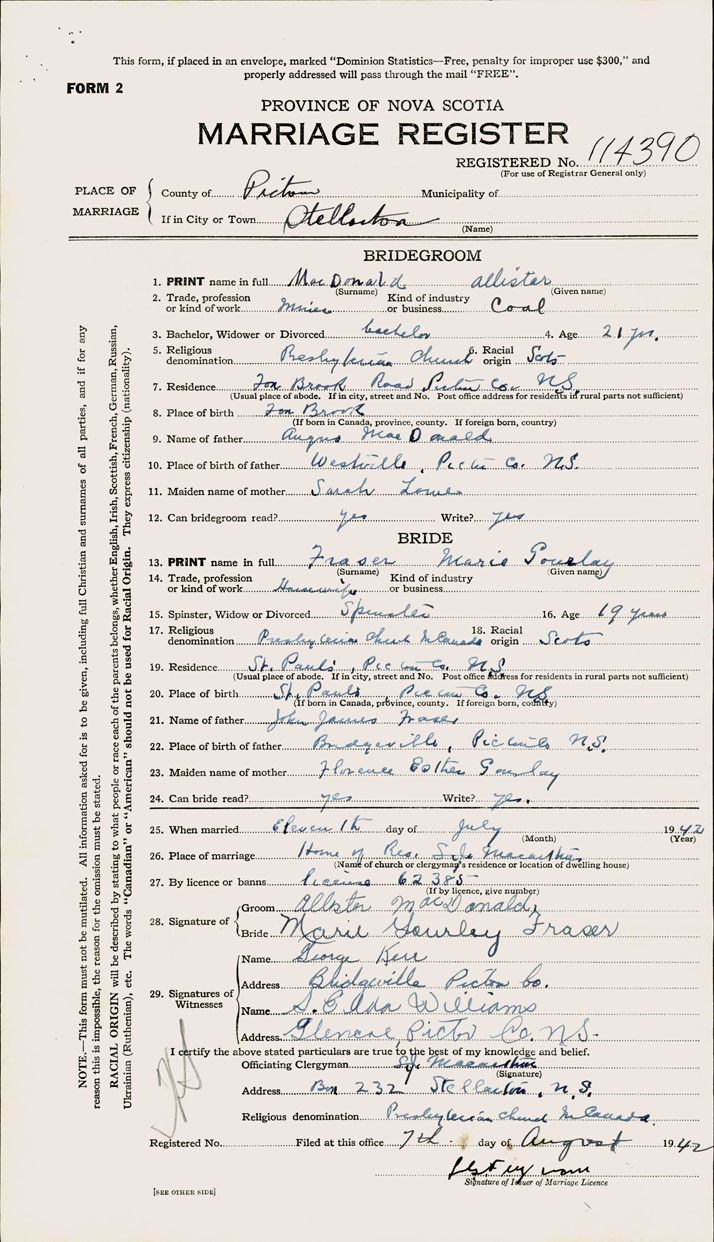 This form, if placed in an envelope, marked "Dominion Statistics—Free, penalty for improper use $300," and
properly addressed will pass through the mail "FREE".
FORM 2
PROVINCE OF NOVA SCOTIA
MARRIAGE REGISTER
REGISTERED No. 114390
(For use of Registrar General only)
PLACE OF MARRIAGE
County of Pictou Municipality of
If in City or Town Stellarton
(Name)
BRIDEGROOM
1. PRINT name in full MacDonald allister
(Surname) (Given name)
2. Trade, profession or kind of work Miner Kind of industry or business Coal
3. Bachelor, Widower or Divorced bachelor 4. Age 21 yrs.
5. Religious denomination Presbyterian Church 6. Racial origin Scots
7. Residence Fox Brook Road Pictou Co. N.S.
(Usual place of abode. If in city, street and No. Post office address for residents in rural parts not sufficient)
8. Place of birth Fox Brook
(If born in Canada, province, county. If foreign born, country)
9. Name of father Angus MacDonald
10. Place of birth of father Westville, Pictou Co. N.S.
11. Maiden name of mother Sarah Lowe
12. Can bridegroom read? yes Write? yes
BRIDE
13. PRINT name in full Fraser Marie Gourlay
(Surname) (Given name)
14. Trade, profession or kind of work Housewife Kind of industry or business
15. Spinster, Widow or Divorced Spinster 16. Age 19 years
17. Religious denomination Presbyterian Church In Canada 18. Racial origin Scots
19. Residence St. Pauls, Pictou Co. N.S.
(Usual place of abode. If in city, street and No. Post office address for residents in rural parts not sufficient)
20. Place of birth St. Pauls, Pictou Co. N.S.
(If born in Canada, province, county. If foreign born, country)
21. Name of father John James Fraser
22. Place of birth of father Bridgeville, Pictou Co N.S.
23. Maiden name of mother Florence Esther Gourlay
24. Can bride read? yes Write? yes.
25. When married Eleventh day of July 1942
(Month) (Year)
26. Place of marriage Home of Rev. S.J. Macarthur
(Name of church or clergyman's residence or location of dwelling house)
27. By licence or banns licence 62385
(If by licence, give number)
28. Signature of
Groom Allister MacDonald
Bride Marie Gourley Fraser
29. Signatures of Witnesses
Name George Kerr
Address Bridgeville Pictou Co.
Name S. E. Ada Williams
Address Glencoe Pictou Co. N.S.
I certify the above stated particulars are true to the best of my knowledge and belief.
Officiating Clergyman S.J. Macarthur
(Signature)
Address Box 232 Stellarton, N.S.
Religious denomination Presbyterian Church In Canada
Registered No. Filed at this office 7th day of August 1942
Signature of Issuer of Marriage Licence
[SEE OTHER SIDE]
NOTE.—This form must not be mutilated. All information asked for is to be given, including full Christian and surnames of all parties, and if for any
reason this is impossible, the reason for the omission must be stated.
RACIAL ORIGIN will be described by stating to what people or race each of the parents belongs, whether English, Irish, Scottish, French, German, Russian,
Ukrainian (Ruthenian), etc. The words "Canadian" or "American" should not be used for Racial Origin. They express citizenship (nationality).